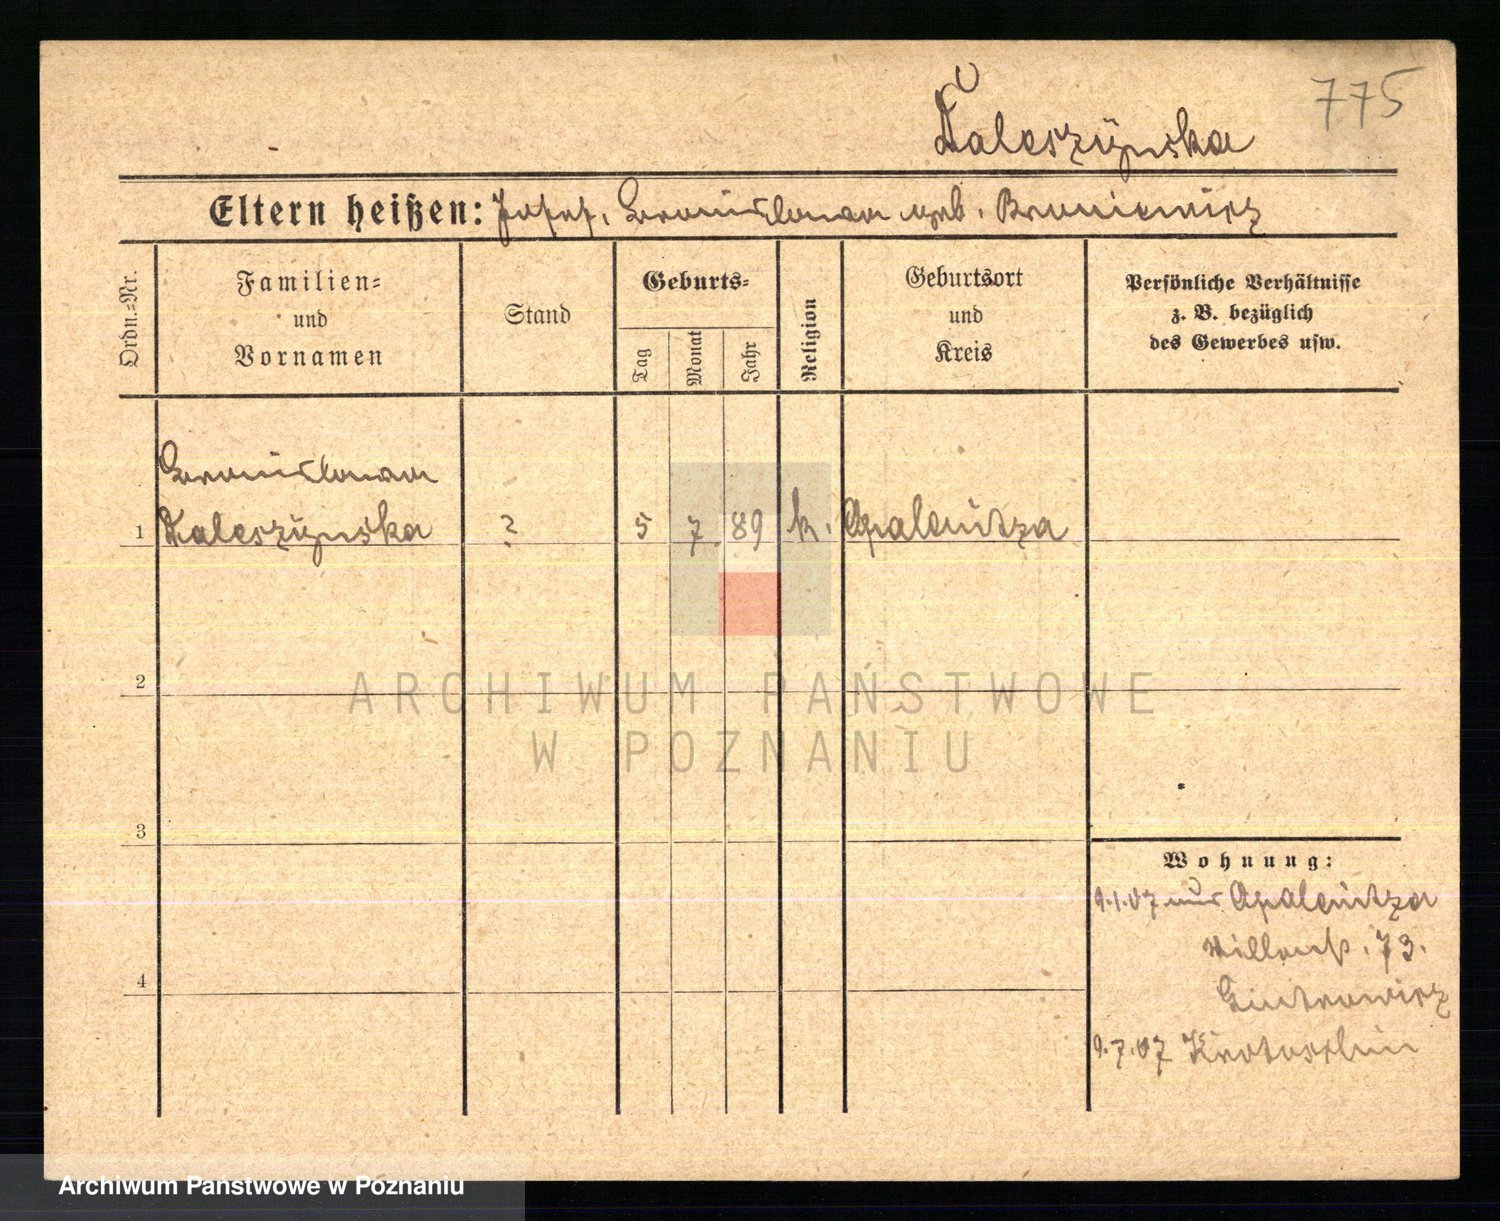 775
Kaleszynska
Eltern heißen: Josef, Bronislawa geb. Broniewicz
Ordn.-Nr.
Familien-
und
Vornamen
Stand
Geburts-
Tag
Monat
Jahr
Religion
Geburtsort
und
Kreis
Persönliche Verhältnisse
z. B. bezüglich
des Gewerbes usw.
Bronislawa
1 Kaleszynska ? 5 7 89 k. Opalenitza
2
3
4
Wohnung:
9.1.07 aus Opalenitza
73.
9.7.07 Krotoschin
ARCHIWUM PAŃSTWOWE
W POZNANIU
Archiwum Państwowe w Poznaniu